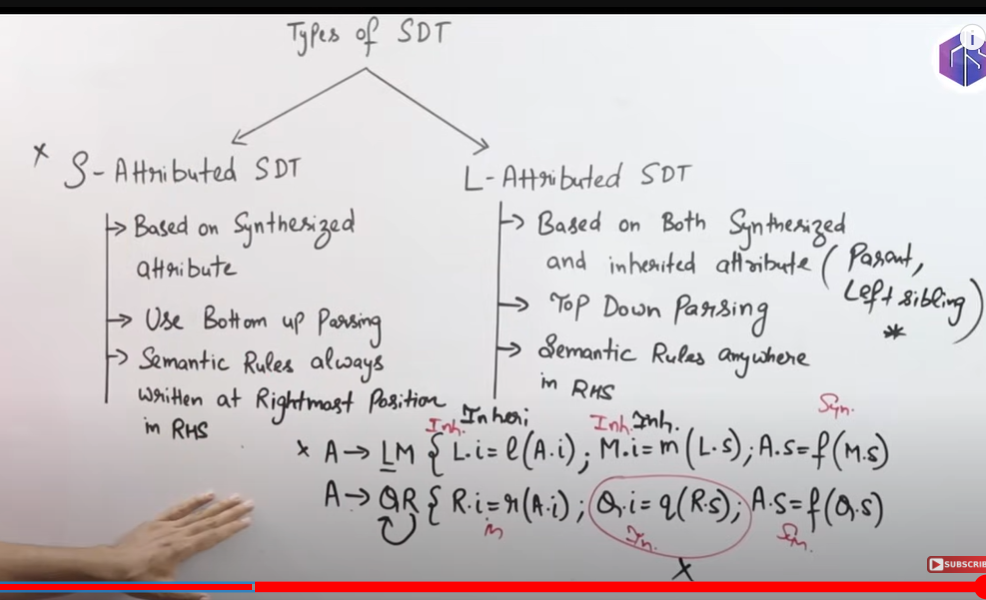 Types of SDT
x S-Attributed SDT
Based on Synthesized
attribute
Use Bottom up Parsing
Semantic Rules always
written at Rightmost Position
in RHS
L-Attributed SDT
Based on Both Synthesized
and inherited attribute (Parant,
Left sibling)
*
Top Down Parsing
Semantic Rules anywhere
in RHS
Inh. Inheri Inh. Inh. Syn.
x A → LM { L.i = l(A.i); M.i = m(L.s); A.s = f(M.s)
A → QR { R.i = r(A.i); Q.i = q(R.s); A.s = f(Q.s)
in In. Syn.
x
i
SUBSCRIB